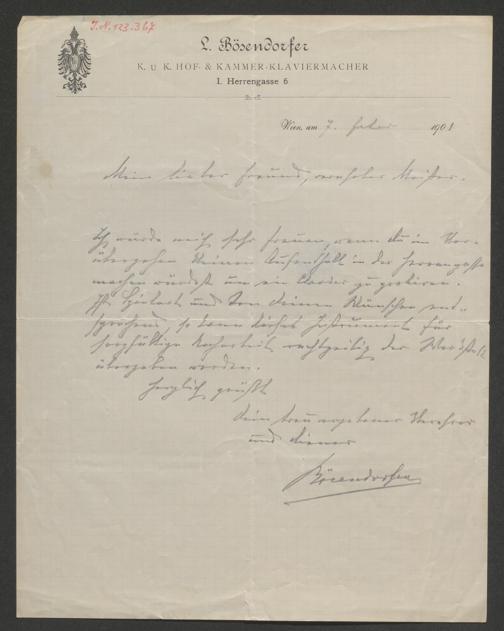 J.N. 123.367
L. Bösendorfer
K. U K. HOF- & KAMMER-KLAVIERMACHER
I. Herrengasse 6
Wien, am 7. 1901
Mein lieber Freund, verehrter Meister.
Ich würde mich sehr freuen, wenn du im Vor-
übergehen kleinen Aufenthalt in der Herrengasse
machen würdest um ein Clavier zu probiren.
und Ton deinen Wünschen ent-
sprechend, so kann Instrument für
sorgfältige rechtzeitig der Werkstatt
übergeben werden.
Herzlich grüßt
Dein treu ergebener Verehrer
und Diener
Bösendorfer